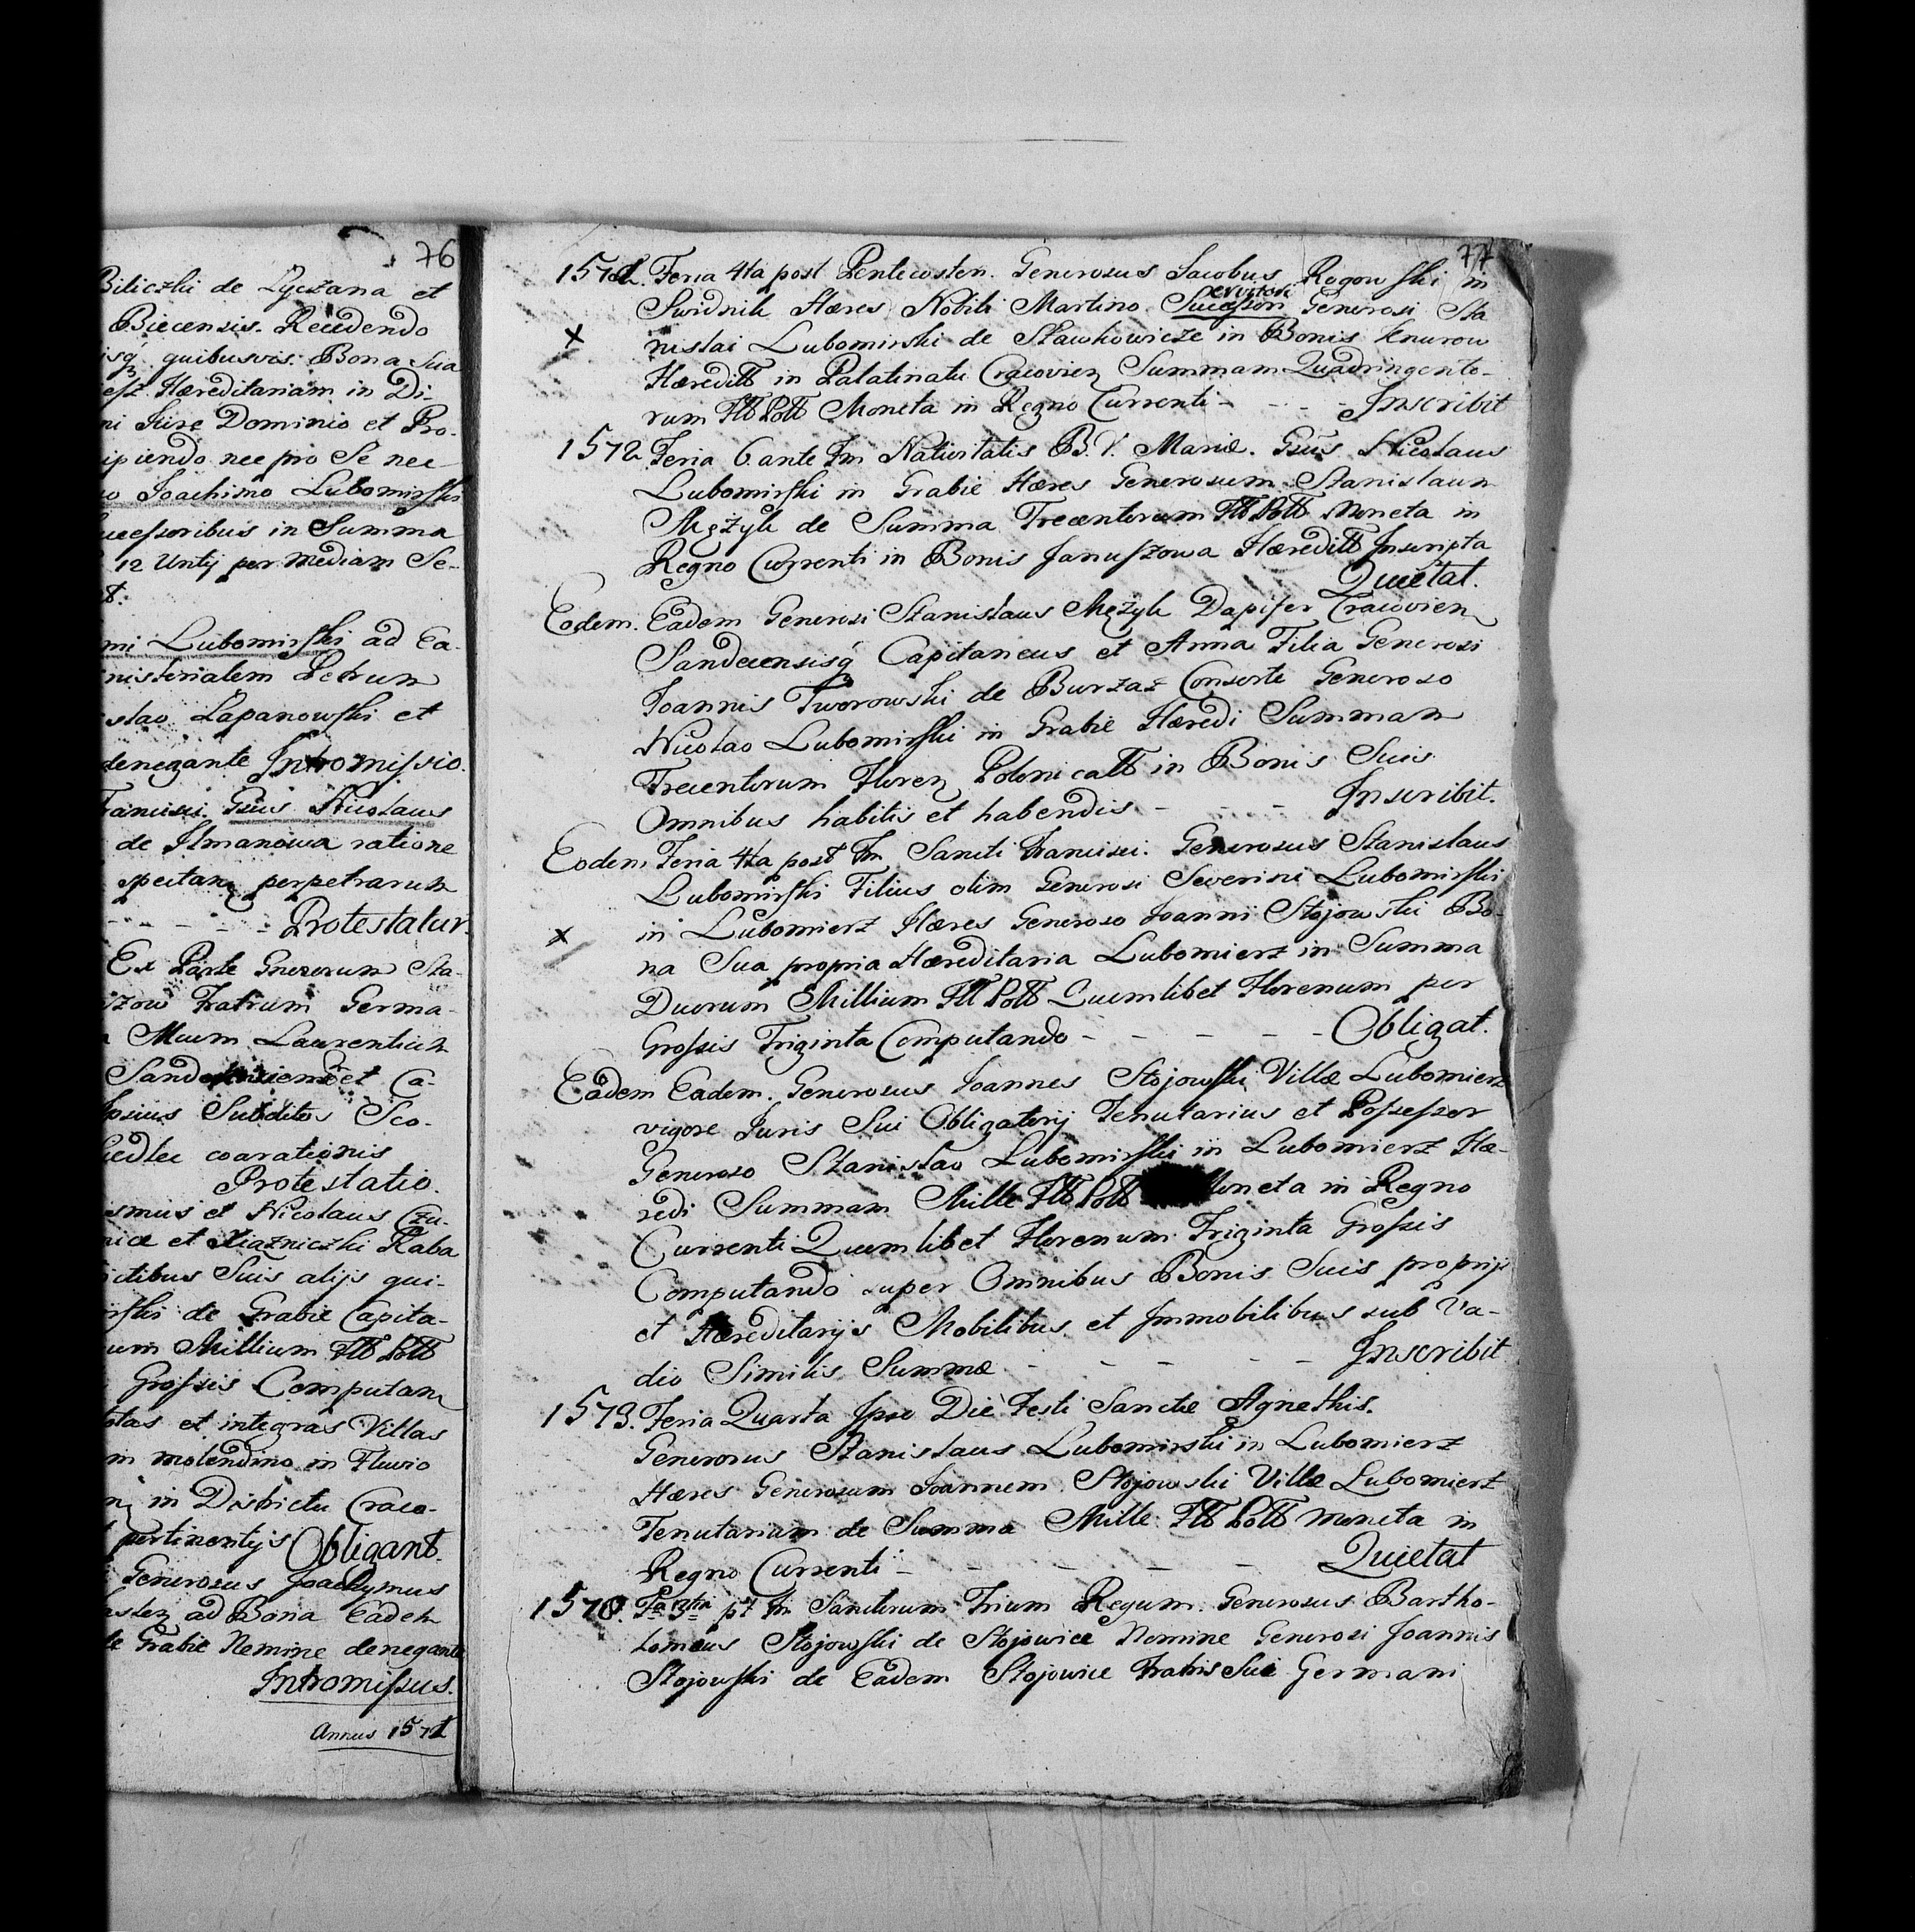 76
Biliczki de Lyczana et
Biecensis. Recedendo
isq quibusvis. Bona Sua
Hæreditariam in Di-
ni Jure Dominio et Pro-
ipiendo nec pro Se nec
Joachimo Lubomirski
uccessoribus in Summa
12 Untij per mediam Se-
t.
mi Lubomirski ad Ea-
nisterialem Petrum
slao Lapanowski et
denegante Intromissio.
Francisci. Gsus Nicolaus
de Ilmanowa ratione
spectan perpetrarum
- - - - Protestatur.
Ex Parte Gnerorum Sta-
szow Fratrum Germa-
Mcum Laurentium
et Ca-
psius Subditos Sco-
Siedlec coarationis
Protestatio.
smus et Nicolaus Czu-
nice et Xiazniczki Raba
ctibus Suis alijs qui-
rski de Grabie Capita-
um Millium Fll Poll
Grossis Computan
totas et integras Villas
m molendino in Fluvio
in Districtu Craco-
pertinentijs Obligant.
Generosus Joachymus
ad Bona Eadem
de Grabie Nemine denegante
Intromissus.
Annus 1571
77
1571. Feria 4ta post Pentecosten. Generosus Jacobus Rogowski in
Swidnik Hæres Nobili Martino Succession Generosi Sta
nislai Lubomirski de Sławkowicze in Bonis Knurow
Hæredit in Palatinatu Cracovien Summam Quadringento-
rum Fll Poll Moneta in Regno Currenti - - - Inscribit
1572. Feria 6 ante Fm Nativitatis B. V. Mariæ. Gsus Nicolaus
Lubomirski in Grabie Hæres Generosum Stanislaum
Mężyk de Summa Trecentorum Fll Poll Moneta in
Regno Currenti in Bonis Januszowa Hæredit Inscripta
Quietat.
Eodem. Eadem Generosi Stanislaus Mężyk Dapifer Cracovien
Sandecensisq Capitaneus et Anna Filia Generosi
Joannis Tworowski de Burzaz Consorte Generoso
Nicolao Lubomirski in Grabie Hæredi Summam
Trecentorum Floren Polonicall in Bonis Suis
Omnibus habitis et habendis - - Inscribit.
Eodem Feria 4ta post Fm Sancti Francisci. Generosus Stanislaus
Lubomirski Filius olim Generosi Severini Lubomirski
in Lubomierz Hæres Generoso Joanni Stojowski Bo-
na Sua propria Hæreditaria Lubomierz in Summa
Duorum Millium Fll Poll Quemlibet Florenum per
Grossis Triginta Computando - - - - - Obligat.
Eadem Eadem. Generosus Joannes Stojowski Villæ Lubomierz
vigore Juris Sui Obligatorij Tenutarius et Possessor
Generoso Stanislao Lubomirski in Lubomierz Hæ-
redi Summam Mille Fll Poll Moneta in Regno
Currenti Quemlibet Florenum Triginta Grossis
Computando super Omnibus Bonis Suis proprijs
et Hæreditarijs Mobilibus et Immobilibus sub Va-
dio Similis Summæ - - - - - Inscribit
1573. Feria Quarta Ipso Die Festi Sanctæ Agnethis.
Generosus Stanislaus Lubomirski in Lubomierz
Hæres Generosum Joannem Stojowski Villæ Lubomierz
Tenutariam de Summa Mille Fll Poll Moneta in
Regno Currenti - - - - - Quietat
1578. Fa 3tia pt Fm Sanctorum Trium Regum. Generosus Bartho-
lomæus Stojowski de Stojowice Nomine Generosi Joannis
Stojowski de Eadem Stojowice Fratris Sui Germani